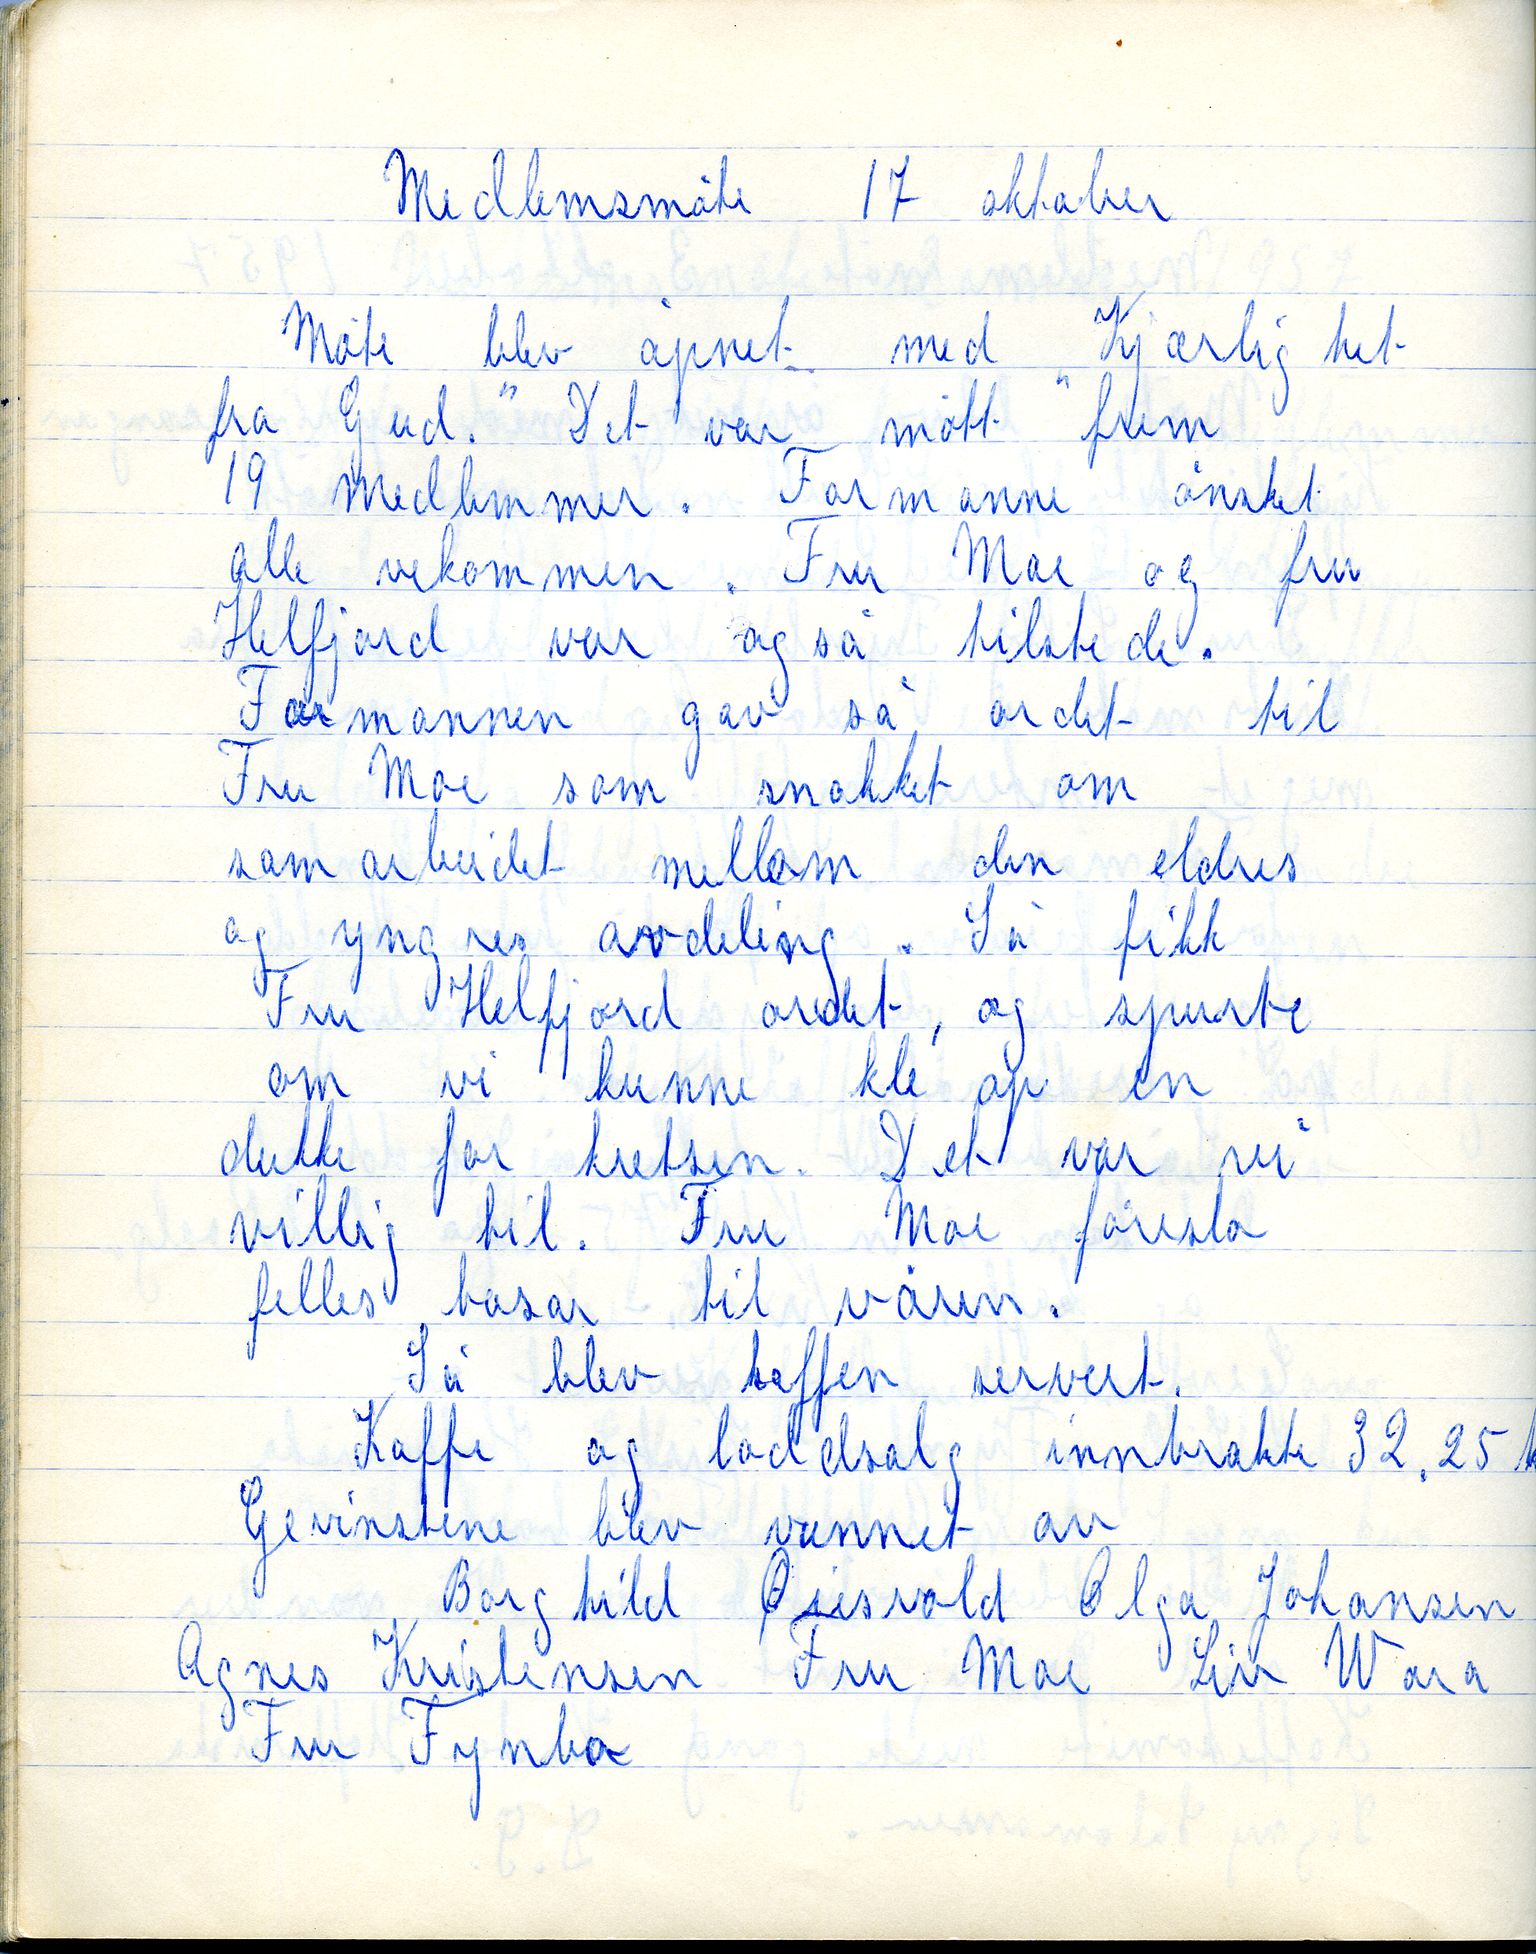 Medlemsmöte 17 oktober
Möte blev åpnet med "Kjærlighet
fra Gud." Det var mött frem
19 medlemmer. Formanne önsket
alle vekommen. Fru Moe og fru
Helfjord var også tilstede.
Formannen gav så ordet til
Fru Moe som snakket om
samarbeidet mellom den eldres
og yngres avdeling. Så fikk
Fru Helfjord ordet, og spurte
om vi kunne kle op en
dukke for kretsen. Det var vi
villig til. Fru Moe föreslo
felles basar til våren.
Så blev kaffen servert.
Kaffe og loddsalg innbrakte 32.25 k
Gevinstene blev vunnet av
Borghild Olga Johansen
Agnes Kristensen Fru Moe Liv Wara
Fru Fynbo